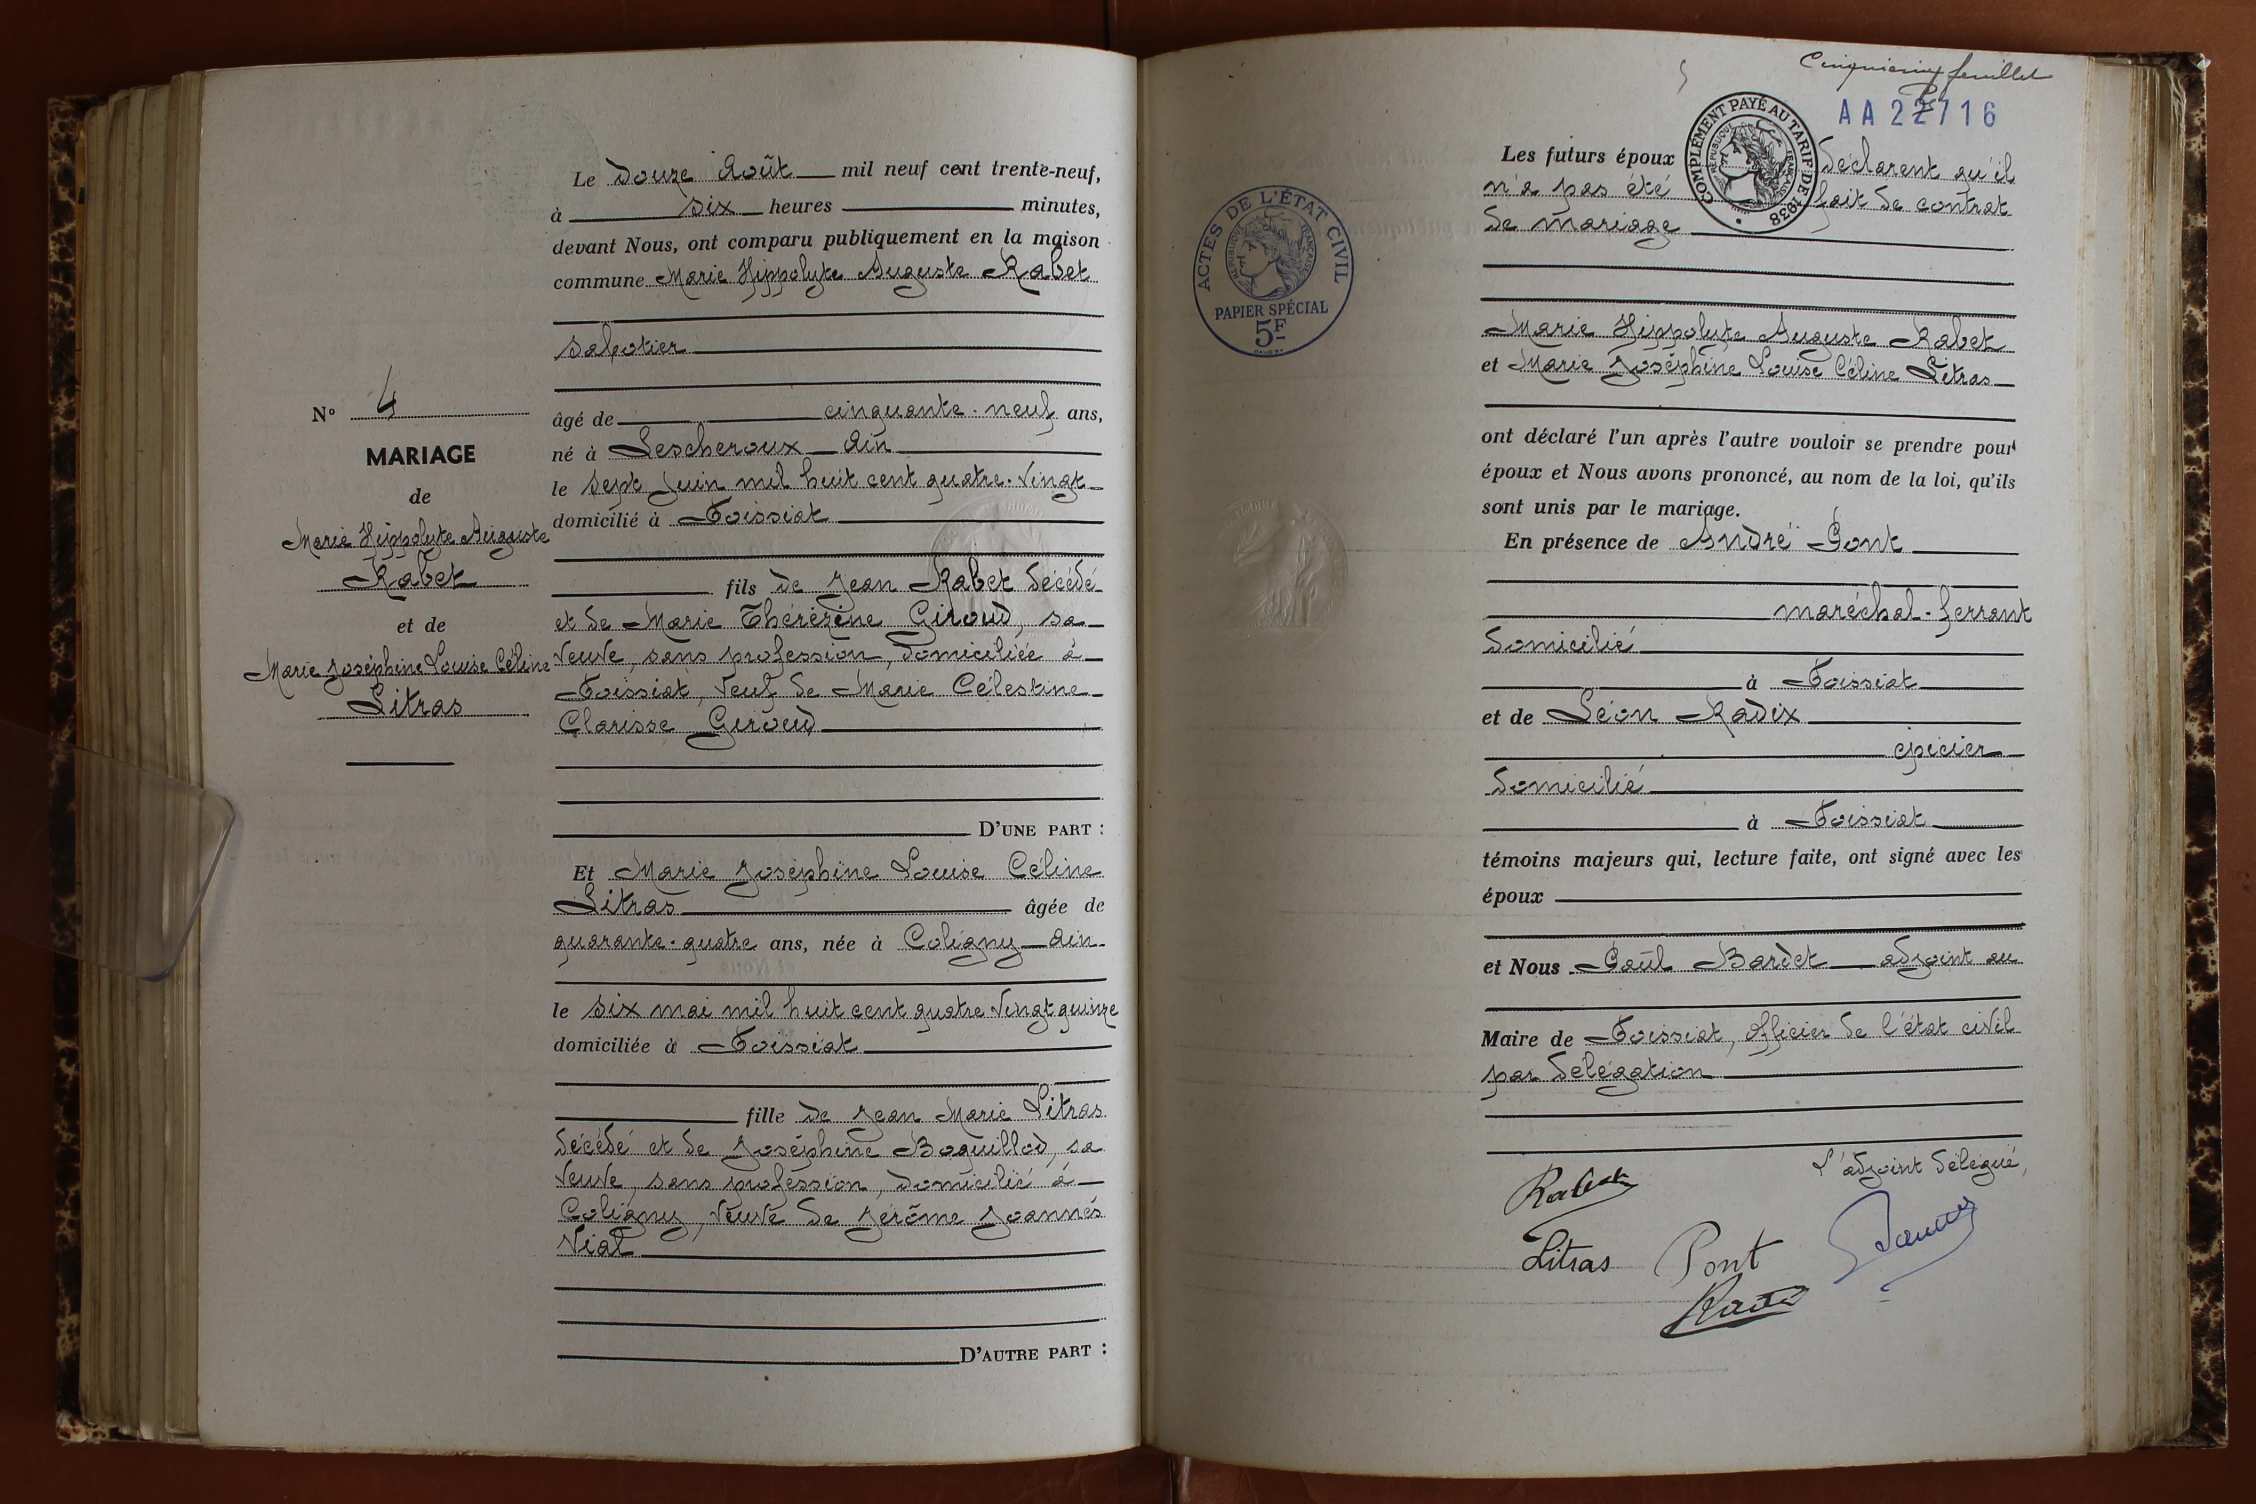 Le douze Août mil neuf cent trente-neuf,
à six heures minutes,
devant Nous, ont comparu publiquement en la maison
commune Marie Hippolyte Auguste Rabet
sabotier
âgé de cinquante-neuf ans,
né à Lescheroux Ain
le sept juin mil huit cent quatre-vingt
domicilié à Foissiat
fils de Jean Rabet décédé
et de Marie Thérézine Giroud, sa
veuve, sans profession, domiciliée à
Foissiat, veuf de Marie Célestine
Clarisse Giroud
D'UNE PART :
Et Marie Joséphine Louise Céline
Litras âgée de
quarante-quatre ans, née à Coligny Ain
le six mai mil huit cent quatre vingt quinze
domiciliée à Foissiat
fille de Jean Marie Litras
décédé et de Joséphine Boguillod, sa
veuve, sans profession, domicilié à
Coligny, veuve de Jérôme Joannés
Vial
D'AUTRE PART :
No 4
MARIAGE
de
Marie Hippolyte Auguste
Rabet
et de
Marie Joséphine Louise Céline
Litras
ACTES DE L'ÉTAT CIVIL
RÉPUBLIQUE FRANÇAISE
PAPIER SPÉCIAL
5F
5
Cinquième feuillet
AA 22716
COMPLÉMENT PAYÉ AU TARIF DE 1938
RÉPUBLIQUE FRANÇAISE
Les futurs époux déclarent qu'il
n'a pas été fait de contrat
de mariage
Marie Hippolyte Auguste Rabet
et Marie Joséphine Louise Céline Litras
ont déclaré l'un après l'autre vouloir se prendre pour
époux et Nous avons prononcé, au nom de la loi, qu'ils
sont unis par le mariage.
En présence de André Pont
maréchal-ferrant
domicilié
à Foissiat
et de Léon Radix
épicier
domicilié
à Foissiat
témoins majeurs qui, lecture faite, ont signé avec les
époux
et Nous Paul Bardet adjoint au
Maire de Foissiat, officier de l'état civil
par délégation
L'adjoint délégué,
Rabet
Litras Pont